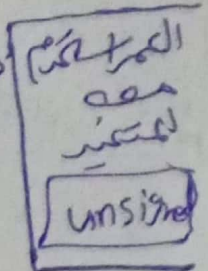 العمر استخدم
معه
المتغير
unsigned